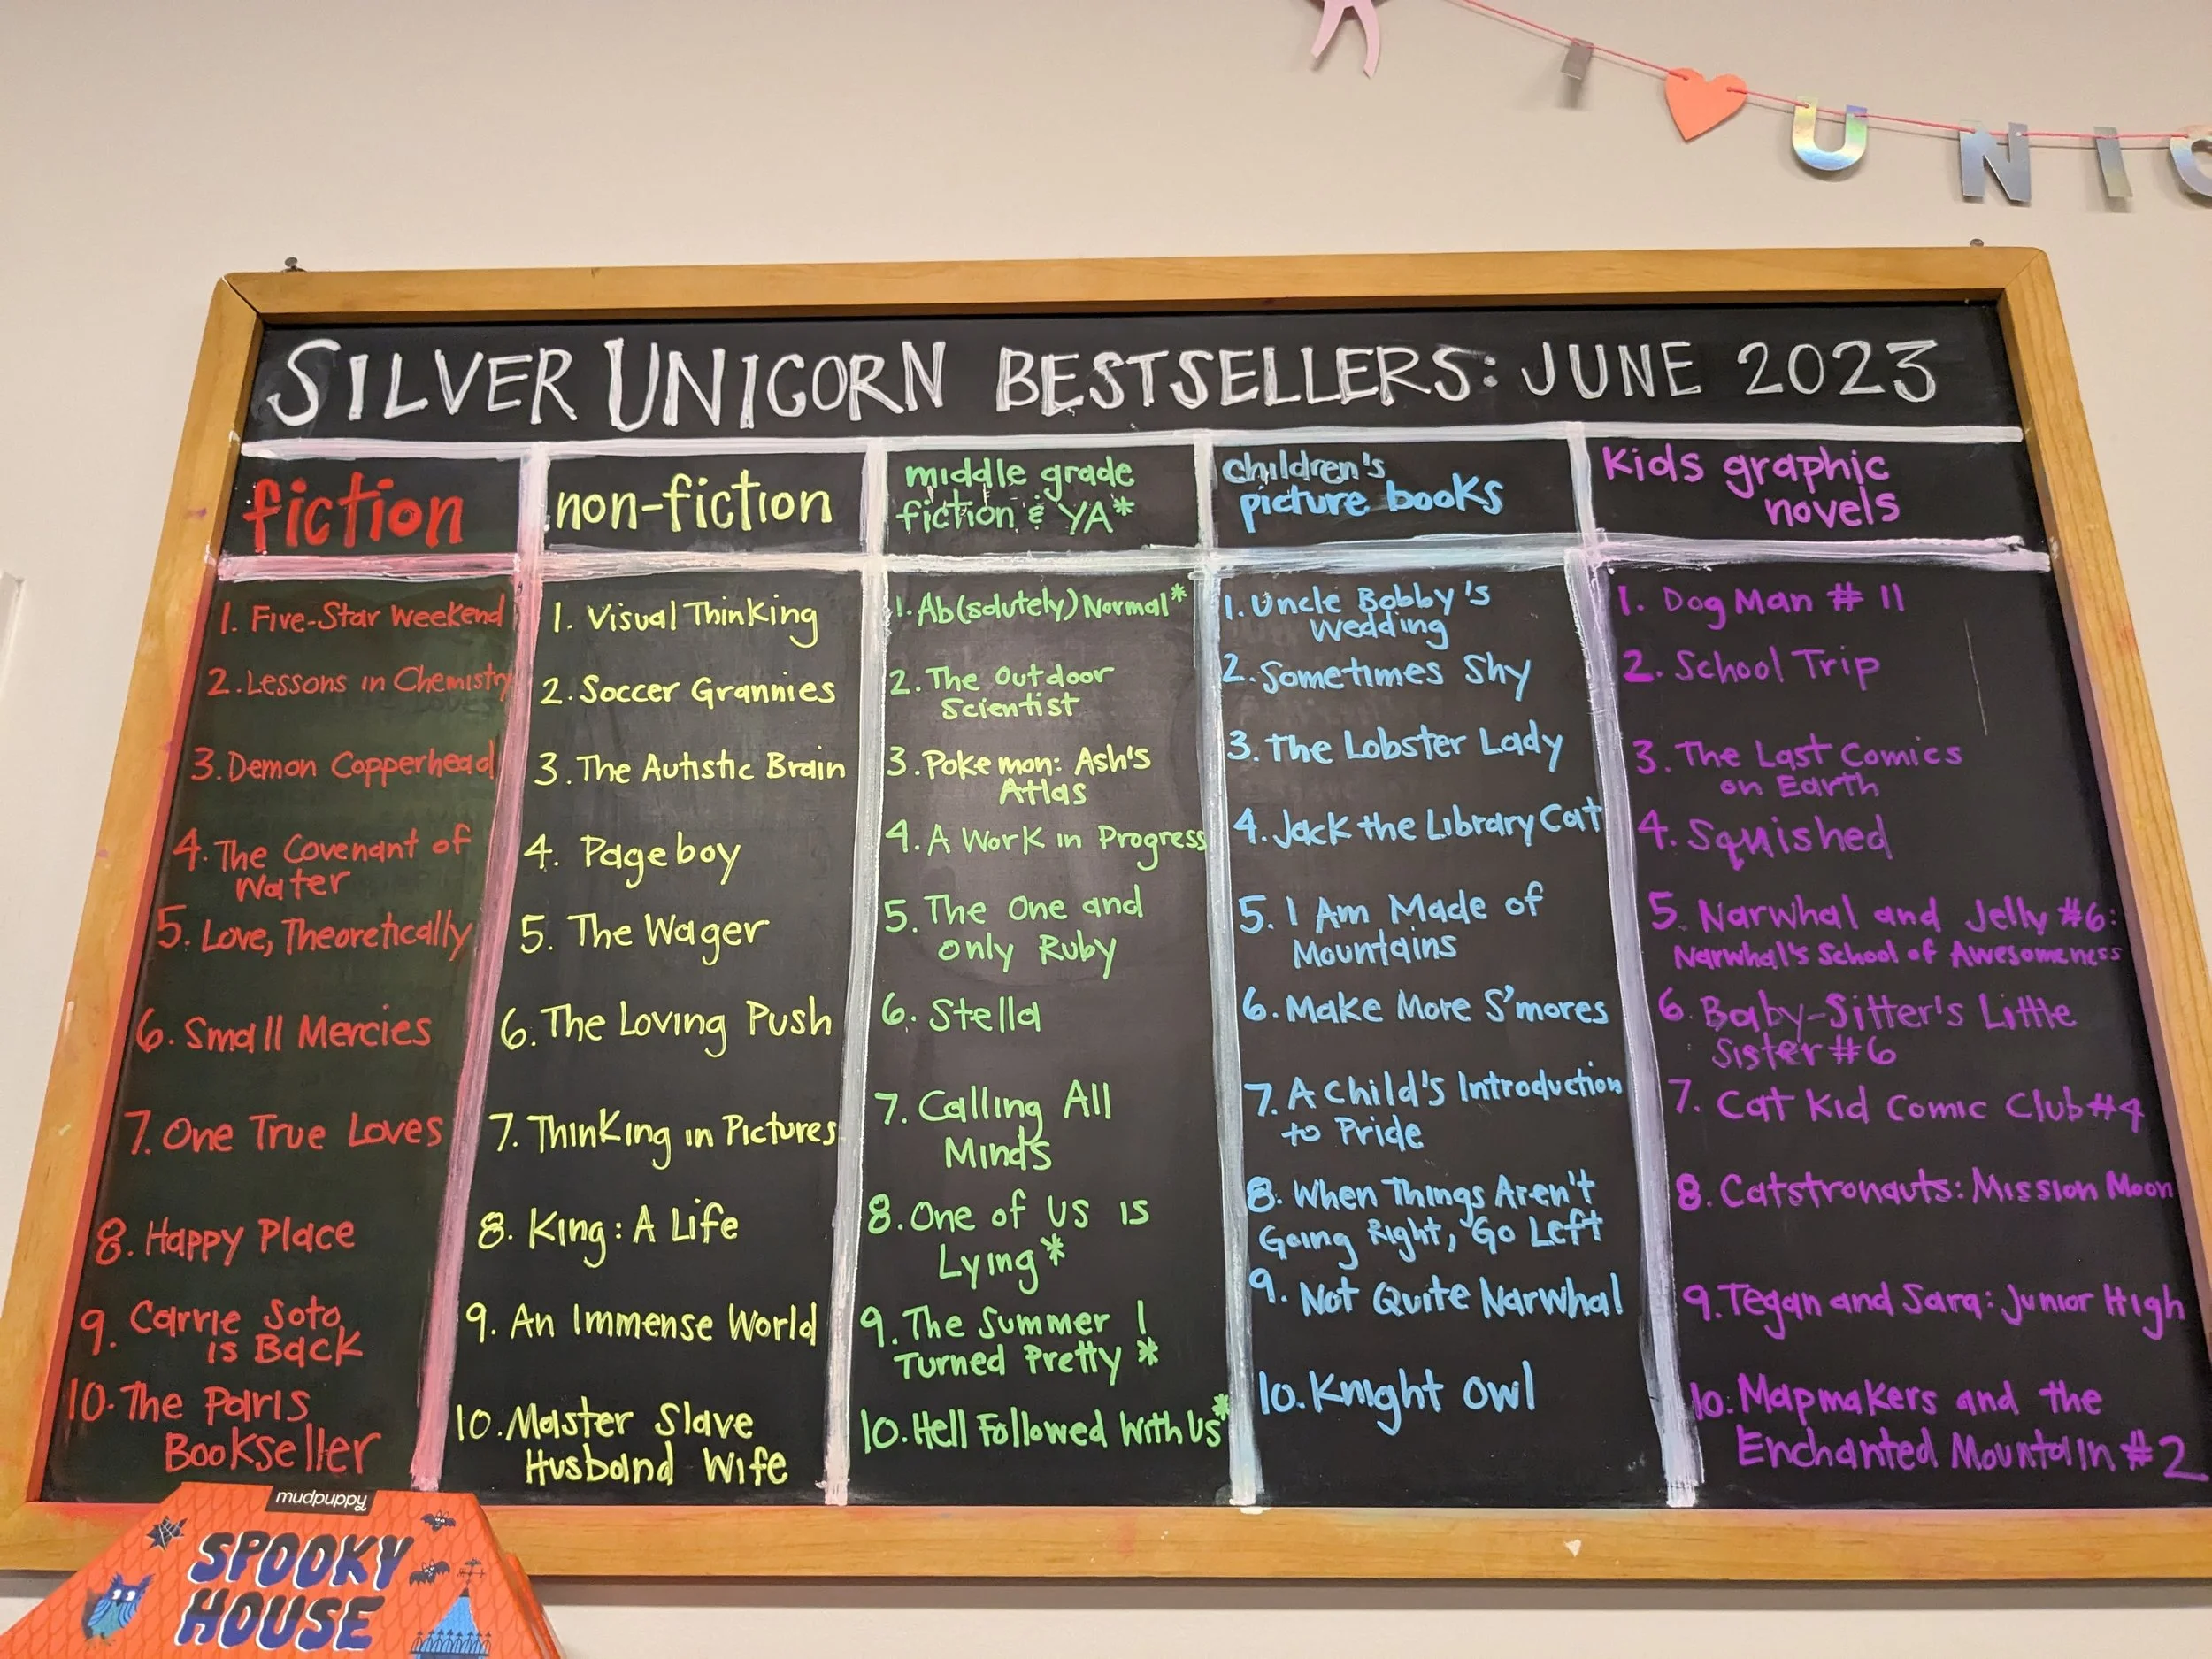 I ♥ UNIC
SILVER UNICORN BESTSELLERS: JUNE 2023
fiction
1. Five-Star Weekend
2. Lessons in Chemistry
3. Demon Copperhead
4. The Covenant of
Water
5. Love, Theoretically
6. Small Mercies
7. One True Loves
8. Happy Place
9. Carrie Soto
is Back
10. The Paris
Bookseller
non-fiction
1. Visual Thinking
2. Soccer Grannies
3. The Autistic Brain
4. Pageboy
5. The Wager
6. The Loving Push
7. Thinking in Pictures
8. King: A Life
9. An Immense World
10. Master Slave
Husband Wife
middle grade
fiction & YA*
1. Ab(solutely) Normal*
2. The Outdoor
Scientist
3. Pokemon: Ash's
Atlas
4. A Work in Progress
5. The One and
only Ruby
6. Stella
7. Calling All
Minds
8. One of Us is
Lying*
9. The Summer I
Turned Pretty*
10. Hell Followed With Us*
children's
picture books
1. Uncle Bobby's
Wedding
2. Sometimes Shy
3. The Lobster Lady
4. Jack the Library Cat
5. I Am Made of
Mountains
6. Make More S'mores
7. A Child's Introduction
to Pride
8. When Things Aren't
Going Right, Go Left
9. Not Quite Narwhal
10. Knight Owl
Kids graphic
novels
1. Dog Man # 11
2. School Trip
3. The Last Comics
on Earth
4. Squished
5. Narwhal and Jelly #6:
Narwhal's School of Awesomeness
6. Baby-Sitter's Little
Sister #6
7. Cat Kid Comic Club #4
8. Catstronauts: Mission Moon
9. Tegan and Sara: Junior High
10. Mapmakers and the
Enchanted Mountain #2
mudpuppy
SPOOKY
HOUSE